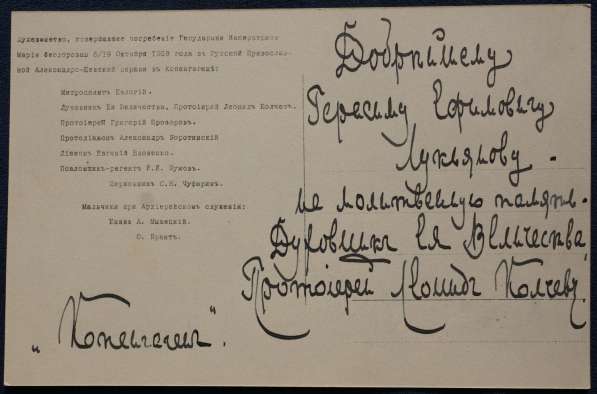 Духовенство, совершавшее погребеніе Государыни Императрицы
Маріи Ѳеодоровны 6/19 Октября 1928 года въ Русской Православ-
ной Александро-Невской церкви въ Копенгагенѣ:
Митрополитъ Евлогій.
Духовникъ Ея Величества, Протоіерей Леонидъ Колчевъ.
Протоіерей Григорій Прозоровъ.
Протодіаконъ Александръ
Діаконъ Евгеній
Псаломщикъ-регентъ
Церковникъ С.К. Чуфаринъ.
Мальчики при Архіерейскомъ служеніи:
Князь А.
О.
Добрѣйшему
Герасиму Ефимовичу
Лукьянову.
на молитвенную память.
Духовникъ Ея Величества
Протоіерей Леонидъ Колчевъ.
„Копенгагенъ".